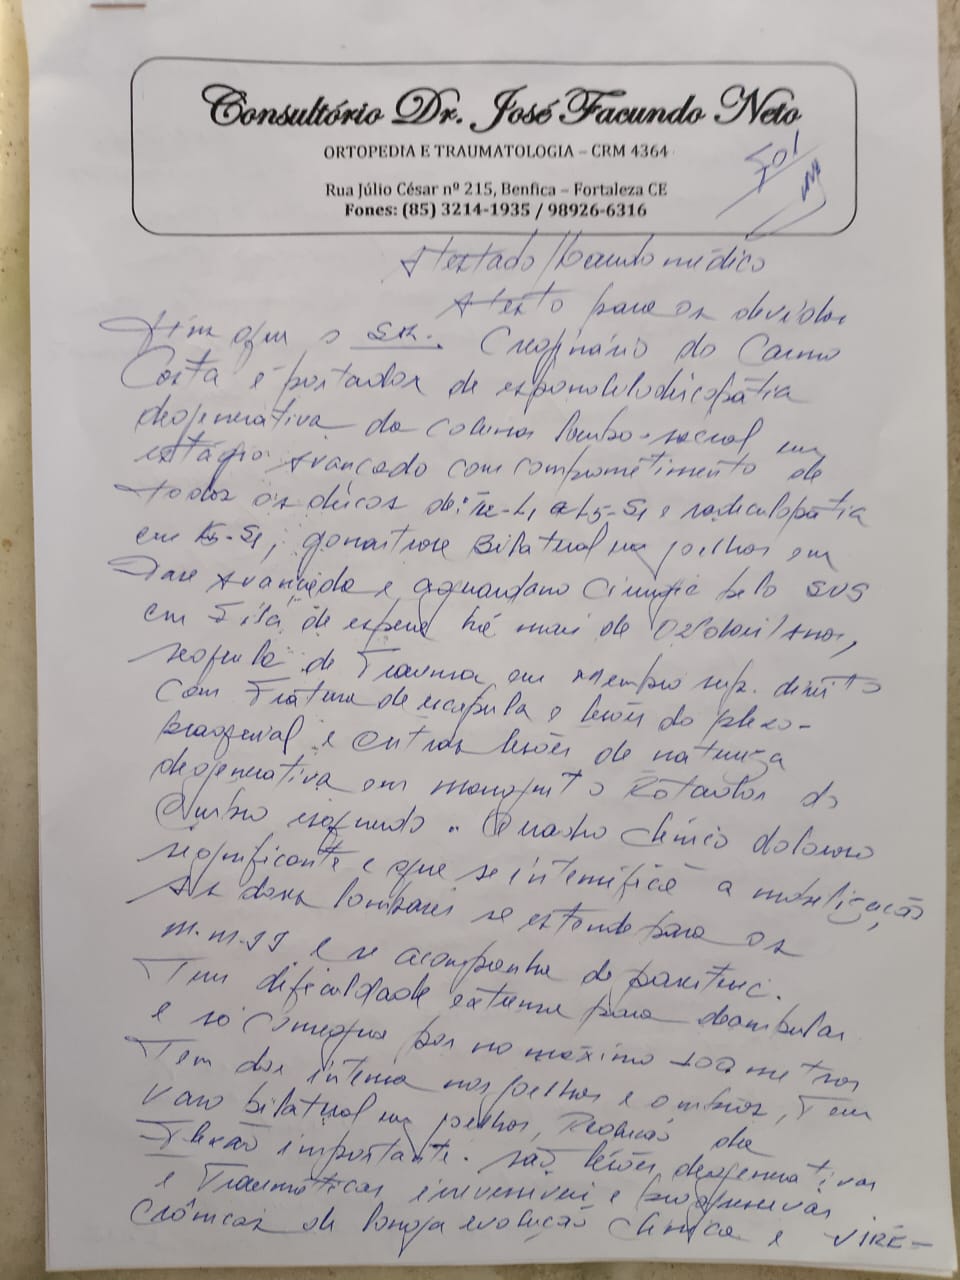 Consultório Dr. José Facundo Neto
ORTOPEDIA E TRAUMATOLOGIA – CRM 4364
Rua Júlio César nº 215, Benfica – Fortaleza CE
Fones: (85) 3214-1935 / 98926-6316
Atestado/Laudo médico
Atesto para os devidos
fins que o SR. do Carmo
Costa é portador de espondilodiscopatia
degenerativa da coluna lombo-sacral em
estágio avançado com comprometimento de
todos os discos de: T12-L1 a L5-S1 e radiculopatia
em L5-S1, gonartrose Bilateral em joelhos em
fase avançada e aguardano cirurgia pelo SUS
em fila de espera há mais de 02(dois) anos,
sequela de Trauma em membro sup. direito
com fratura de escápula e lesões do plexo-
braquial e outras lesões de natureza
degenerativa em manguito Rotador do
Ombro esquerdo. Quadro clínico doloroso
significante e que se intensifica a mobilização
As dores lombares se estende para os
M.M.II e se acompanha de
Tem dificuldade extrema para deambular
e só consegue por no máximo 100 metros
Tem dor intensa nos joelhos e ombros, Tem
Varo bilateral em joelhos, Redução da
Flexão importante. São lesões degenerativas
e Traumáticas irreversíveis e progressivas
Crônicas de longa evolução clínica e VIRE-